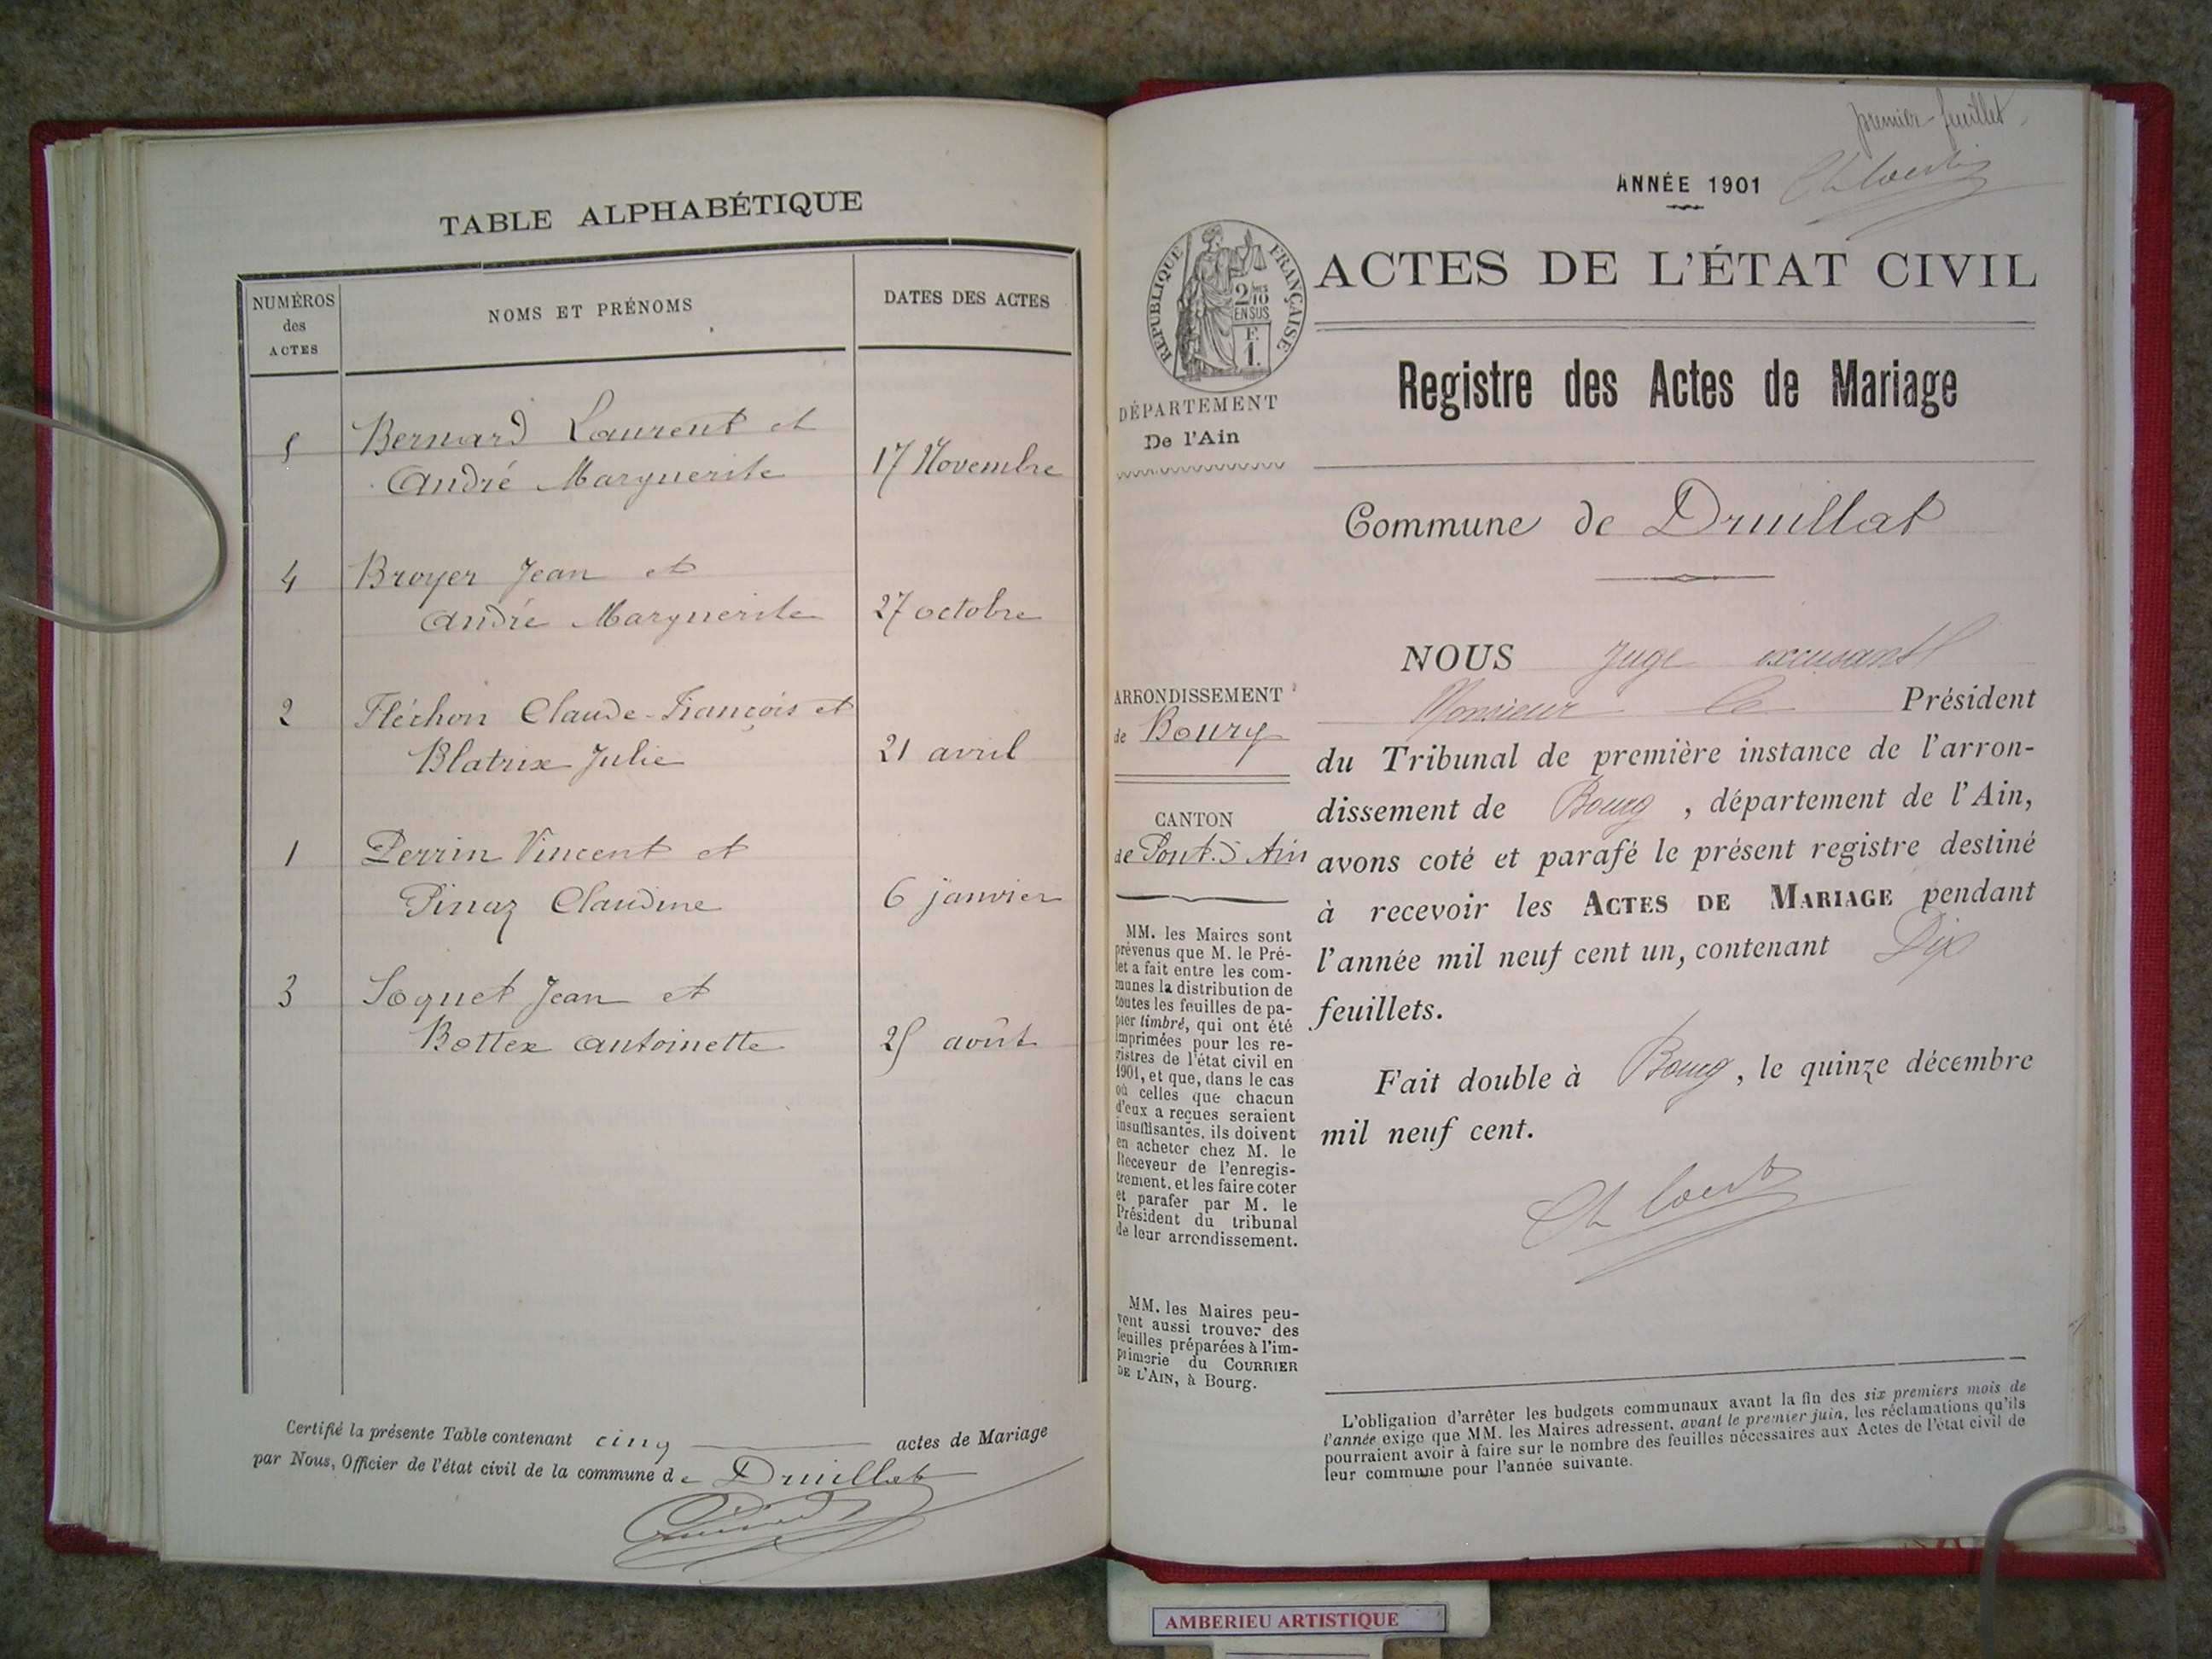 TABLE ALPHABÉTIQUE
NUMÉROS
des
ACTES
NOMS ET PRÉNOMS
DATES DES ACTES
5 Bernard Laurent et
André Marguerite 17 Novembre
4 Broyer Jean et
André Marguerite 27 octobre
2 Fléchon Claude-François et
Blatrix Julie 21 avril
1 Perrin Vincent et
Pinaz Claudine 6 janvier
3 Soquet Jean et
Bottex Antoinette 25 août
Certifié la présente Table contenant cinq actes de Mariage
par Nous, Officier de l'état civil de la commune de Druillat
premier feuillet
ANNÉE 1901
RÉPUBLIQUE FRANÇAISE
2/10
EN SUS
F.
1.
ACTES DE L'ÉTAT CIVIL
Registre des Actes de Mariage
DÉPARTEMENT
De l'Ain
Commune de Druillat
ARRONDISSEMENT
de Bourg
CANTON
de Pont-d'Ain
MM. les Maires sont
prévenus que M. le Pré-
fet a fait entre les com-
munes la distribution de
toutes les feuilles de pa-
pier timbré, qui ont été
imprimées pour les re-
gistres de l'état civil en
1901, et que, dans le cas
où celles que chacun
d'eux a reçues seraient
insuffisantes, ils doivent
en acheter chez M. le
Receveur de l'enregis-
trement, et les faire coter
et parafer par M. le
Président du tribunal
de leur arrondissement.
MM. les Maires peu-
vent aussi trouver des
feuilles préparées à l'im-
primerie du COURRIER
DE L'AIN, à Bourg.
NOUS Juge excusant
Monsieur le Président
du Tribunal de première instance de l'arron-
dissement de Bourg, département de l'Ain,
avons coté et parafé le présent registre destiné
à recevoir les ACTES DE MARIAGE pendant
l'année mil neuf cent un, contenant Dix
feuillets.
Fait double à Bourg, le quinze décembre
mil neuf cent.
L'obligation d'arrêter les budgets communaux avant la fin des six premiers mois de
l'année exige que MM. les Maires adressent, avant le premier juin, les réclamations qu'ils
pourraient avoir à faire sur le nombre des feuilles nécessaires aux Actes de l'état civil de
leur commune pour l'année suivante.
AMBERIEU ARTISTIQUE